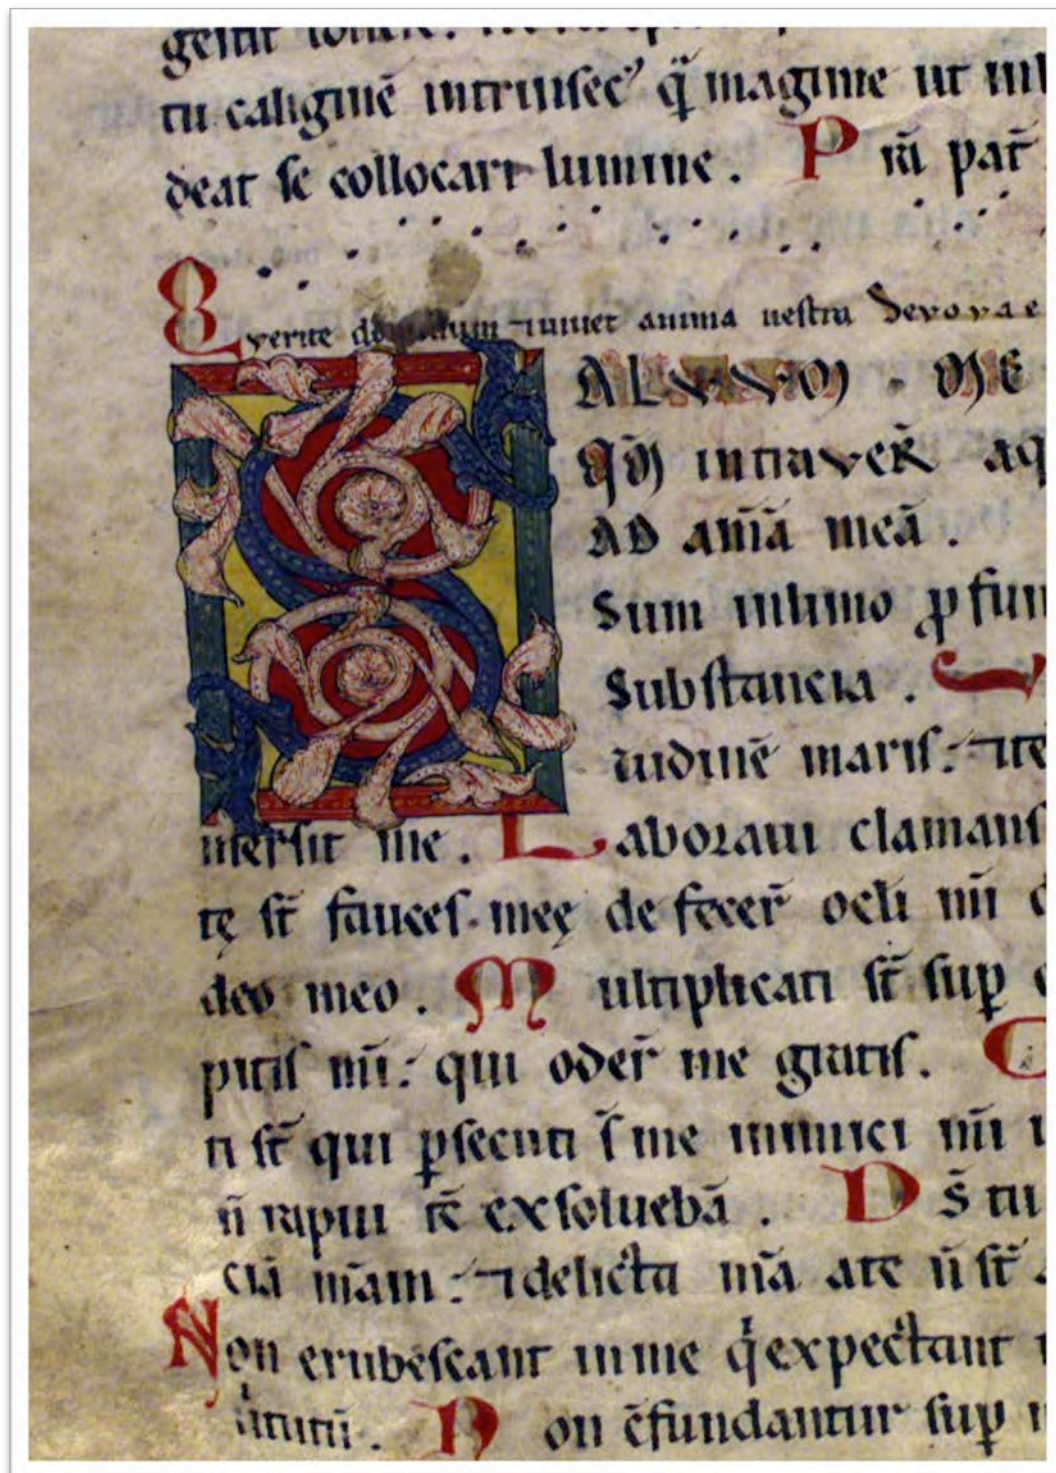 tu caliginē intrinsec᾽ q̄ magine ut
deat se collocari lumine. P rā pat̄
verite animā vestra
SALVVM ME
q̄m intraver̄ aq
AD am̄ā meā.
Sum inlimo ꝓfun
Substancia.
tudinē maris: ⁊te
mersit me. Laboraui clamans
tę st̄ fauces meę defecer̄ oc̄li m̄i
deo meo. Multiplicati st̄ sup̱
pitis m̄i: qui oder̄ me gratis. C
ti st̄ qui p̱secuti s̄ me inimici m̄i
n̄ rapui tc̄ exsoluebā. Ds̄ tu
ciā m̄am: ⁊delicta m̄a ate n̄ st̄
Non erubescant inme q̄ expectant
uirtutū. Non c̄fundantur sup̱